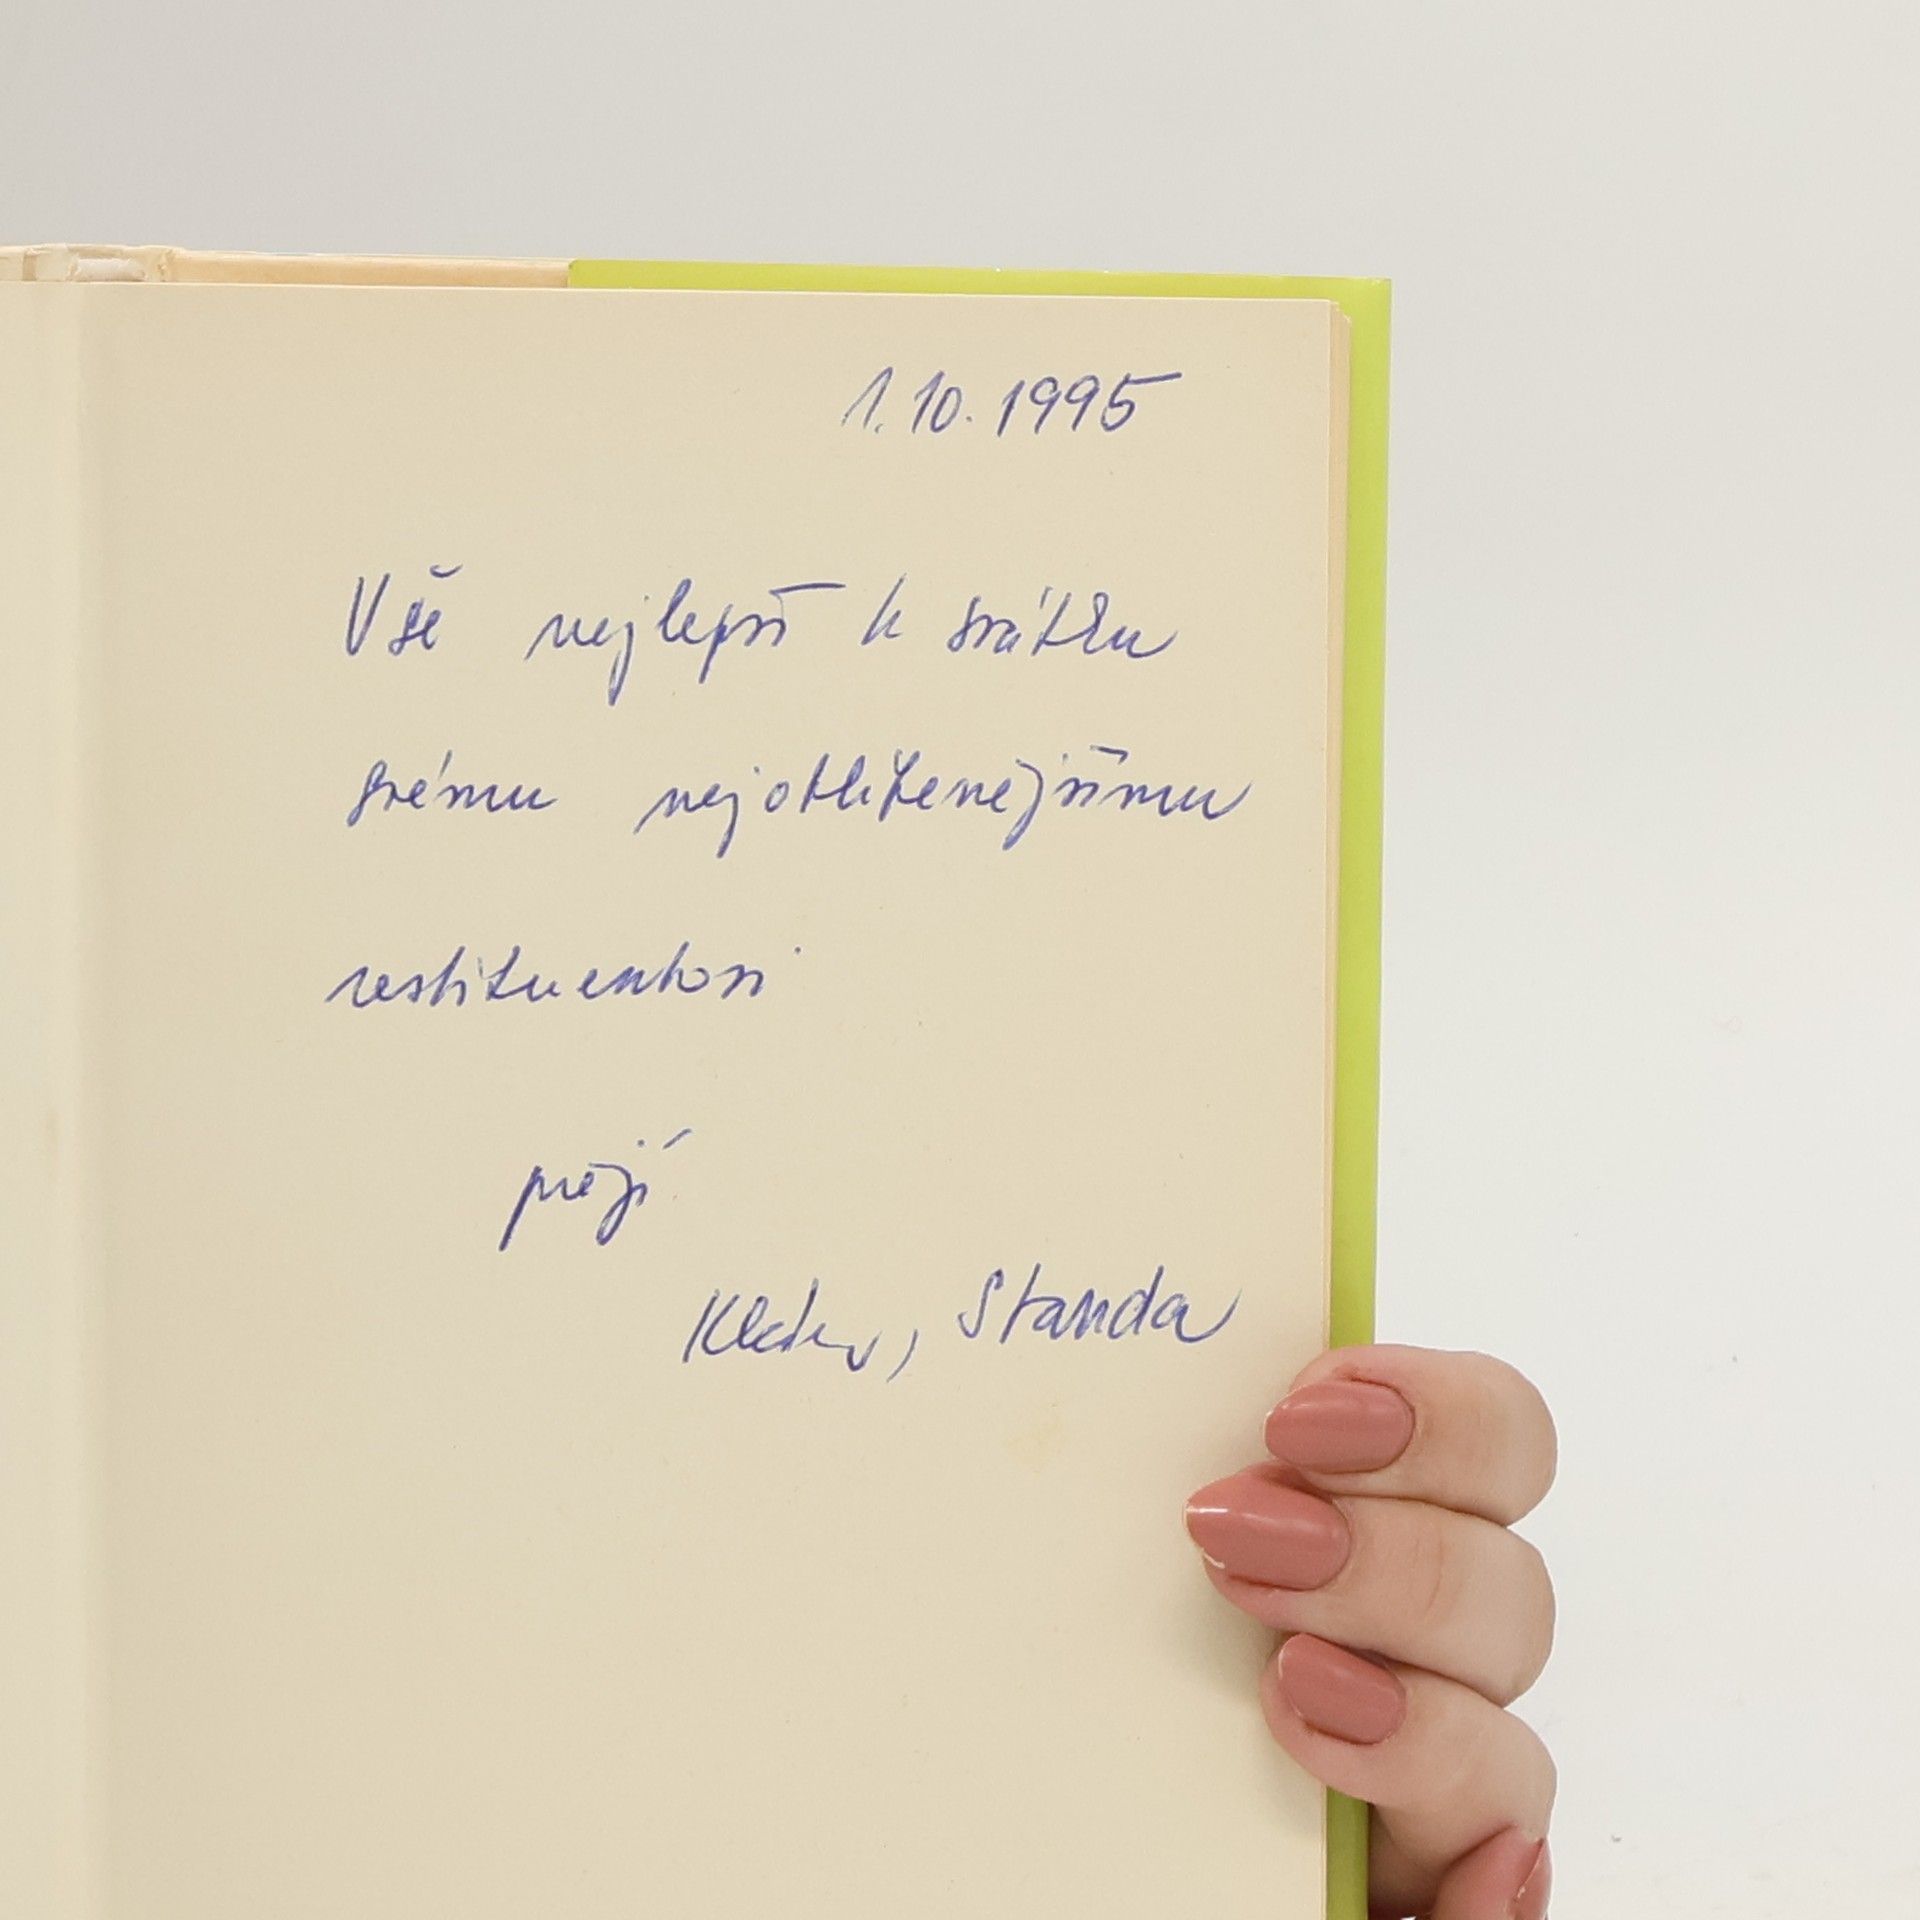 1.10.1995
Vše nejlepší k svátku
svému nejotřilenějšímu
restituentovi
přejí
Standa